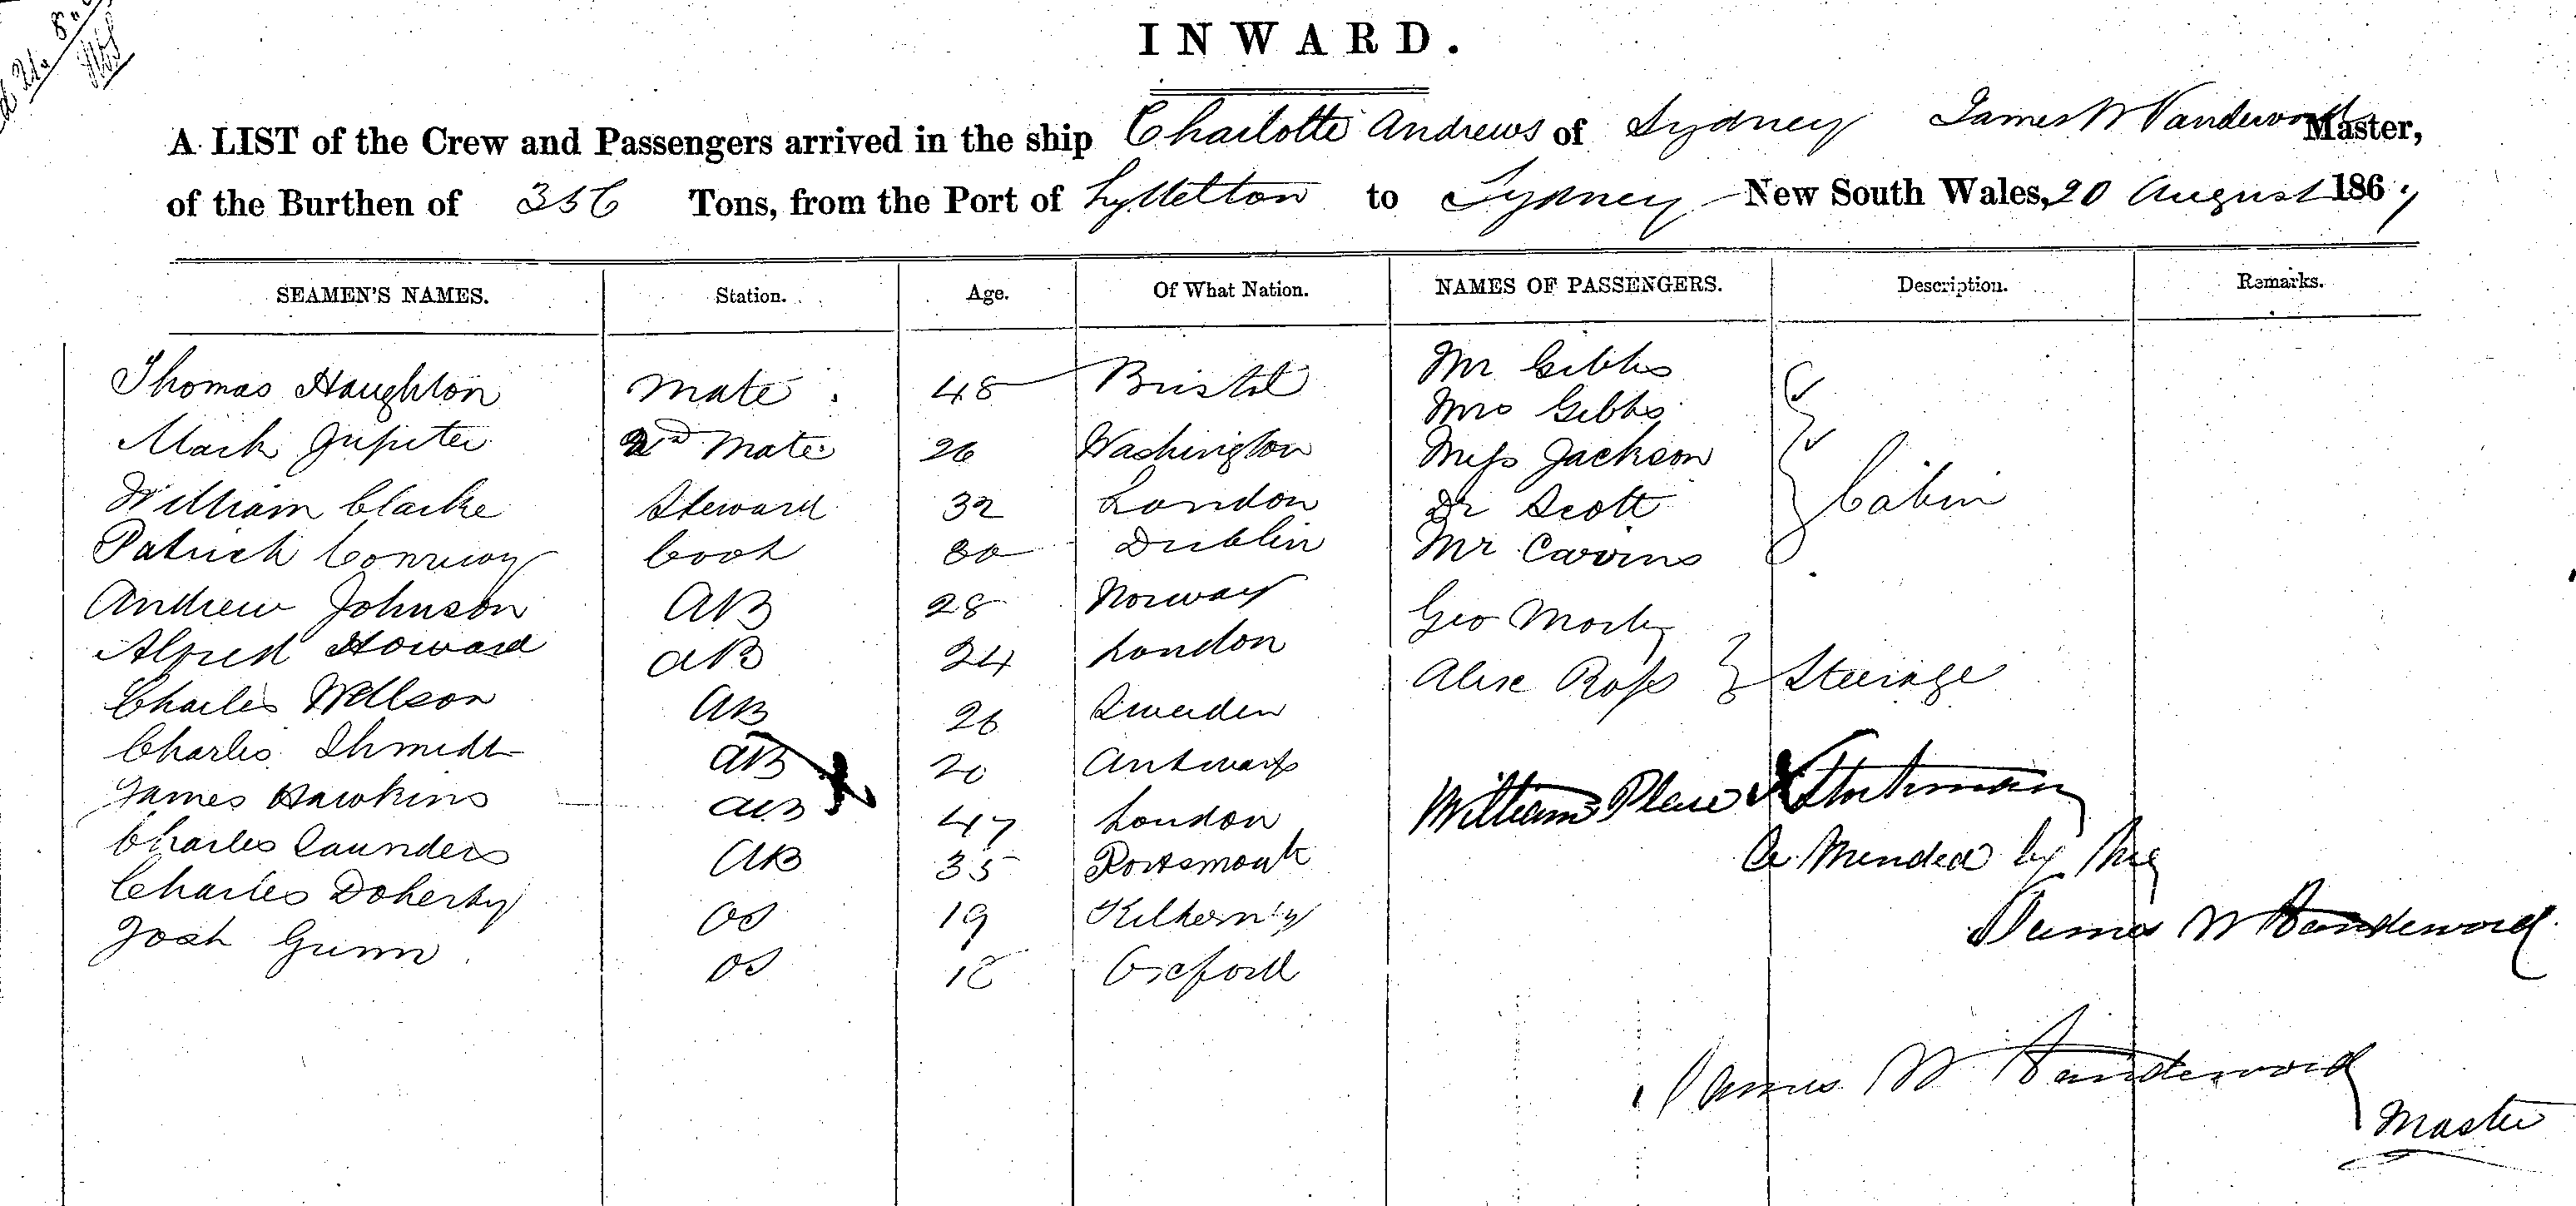 INWARD.
A LIST of the Crew and Passengers arrived in the ship Charlotte Andrews of Sydney James W Vandervord Master,
of the Burthen of 356 Tons, from the Port of Lyttelton to Sydney New South Wales, 20 August 1867
SEAMEN'S NAMES. Station. Age. Of What Nation. NAMES OF PASSENGERS. Description. Remarks.
Thomas Haughton Mate 48 Bristol Mr Gibbs
Mrs Gibbs
Mark Jupiter 2nd Mate 26 Washington Miss Jackson
William Clarke Steward 32 London Dr Scott Cabin
Patrick Conway Cook 30 Dublin Mr Cavvins
Andrew Johnson AB 28 Norway Geo Morly
Alfred Howard AB 24 London
Charles Wellson AB 26 Sweden Alex Ross Steerage
Charles Shmidt AB 20 Antwarp
James Hawkins AB 47 London William Place
Charles Saunders AB 35 Portsmouth Amended by me
Charles Doherty OS 19 Kilkenny James W Vandervord
Josh Gunn OS 18 Oxford
James W Vandervord
Master